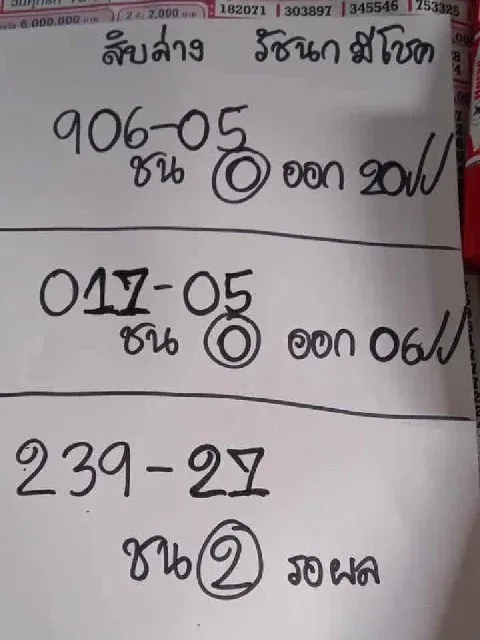 6,000,000 บาท 2,000 บาท 182021 303897 345546 753325
สิบล่าง รัชนก มีโชค
906-05
ชน 0 ออก 20ปป
017-05
ชน 0 ออก 06ปป
239-27
ชน 2 รอผล